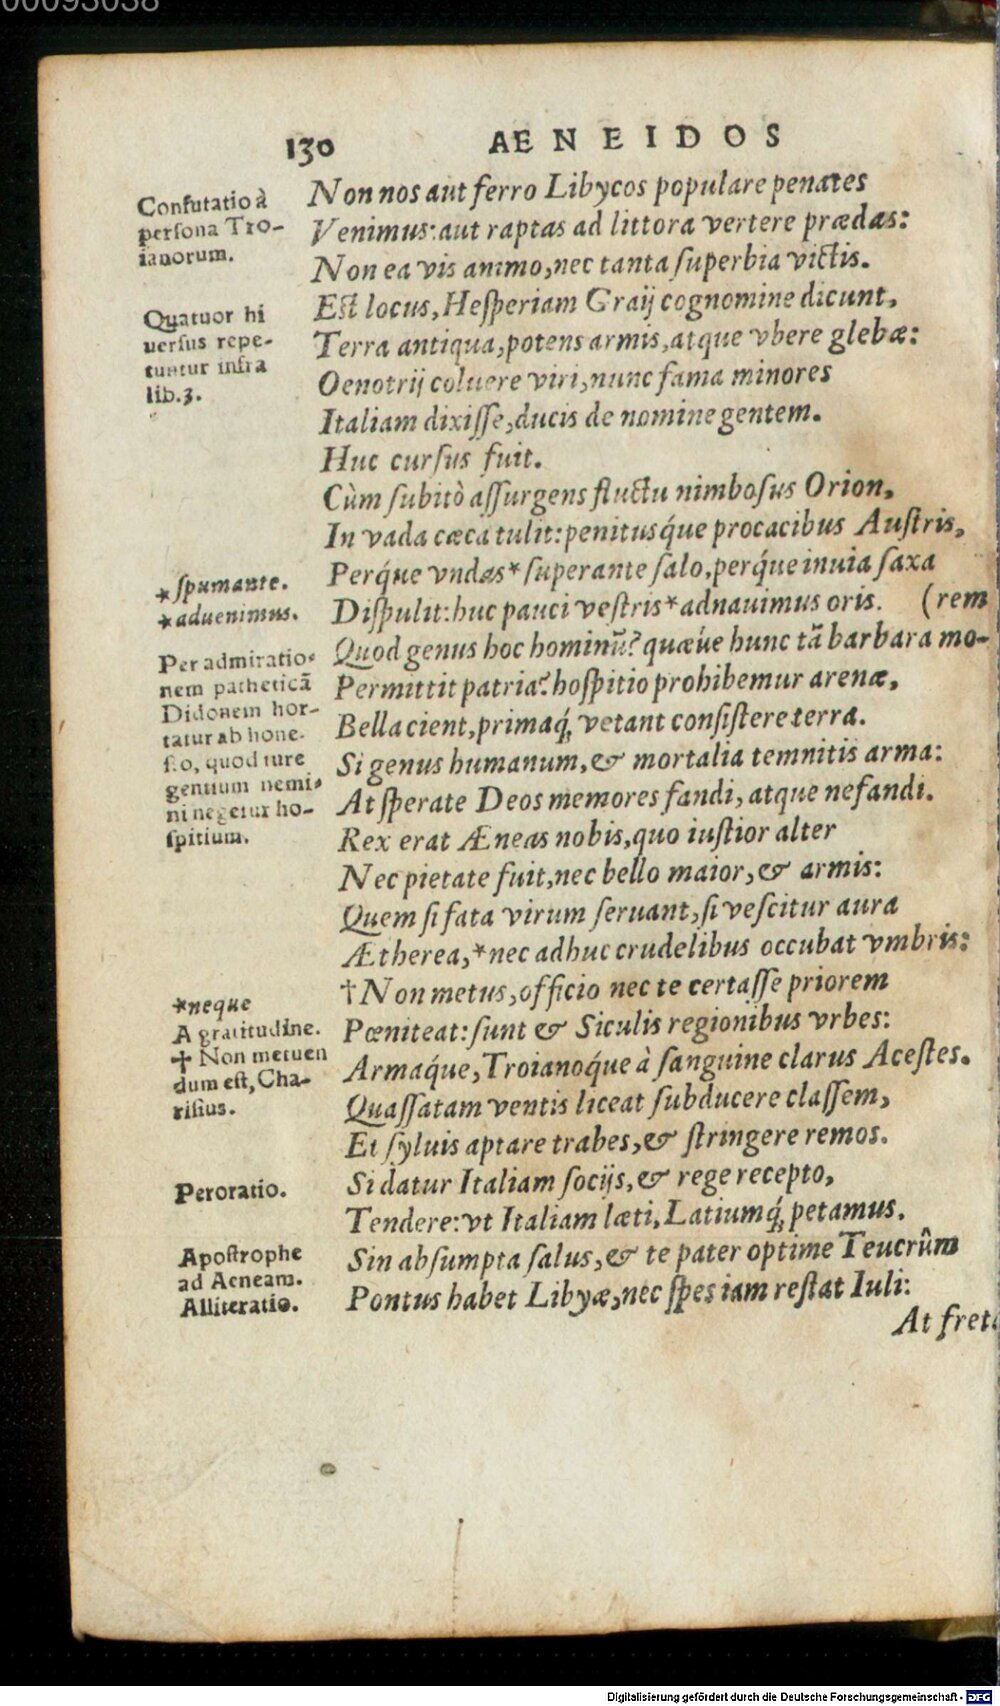 00093038
130 AENEIDOS
Confutatio à
persona Tro-
ianorum.
Quatuor hi
uersus repe-
tuntur infra
lib.3.
*spumante.
*aduenimus.
Per admiratio-
nem patheticã
Didonem hor-
tatur ab hone-
sto, quod iure
gentium nemi-
ni negetur ho-
spitium.
*neque
A gratitudine.
✝ Non metuen
dum est, Cha-
risius.
Peroratio.
Apostrophe
ad Aeneam.
Alliteratio.
Non nos aut ferro Libycos populare penates
Venimus: aut raptas ad littora vertere prædas:
Non ea vis animo, nec tanta superbia victis.
Est locus, Hesperiam Graij cognomine dicunt,
Terra antiqua, potens armis, atque vbere glebæ:
Oenotrij coluere viri, nunc fama minores
Italiam dixisse, ducis de nomine gentem.
Huc cursus fuit.
Cùm subitò assurgens fluctu nimbosus Orion,
In vada cæca tulit: penitusq́ue procacibus Austris,
Perq́ue vndas* superante salo, perq́ue inuia saxa
Dispulit: huc pauci vestris* adnauimus oris. (rem
Quod genus hoc hominũ? quæúe hunc tã barbara mo-
Permittit patria? hospitio prohibemur arenæ,
Bella cient, primaq́, vetant consistere terra.
Si genus humanum, & mortalia temnitis arma:
At sperate Deos memores fandi, atque nefandi.
Rex erat Æneas nobis, quo iustior alter
Nec pietate fuit, nec bello maior, & armis:
Quem si fata virum seruant, si vescitur aura
Ætherea, *nec adhuc crudelibus occubat vmbris:
†Non metus, officio nec te certasse priorem
Pœniteat: sunt & Siculis regionibus vrbes:
Armaq́ue, Troianoq́ue à sanguine clarus Acestes.
Quassatam ventis liceat subducere classem,
Et syluis aptare trabes, & stringere remos.
Si datur Italiam socijs, & rege recepto,
Tendere: vt Italiam læti, Latiumq́, petamus.
Sin absumpta salus, & te pater optime Teucrûm
Pontus habet Libyæ, nec spes iam restat Iuli:
At freta
Digitalisierung gefördert durch die Deutsche Forschungsgemeinschaft - DFG